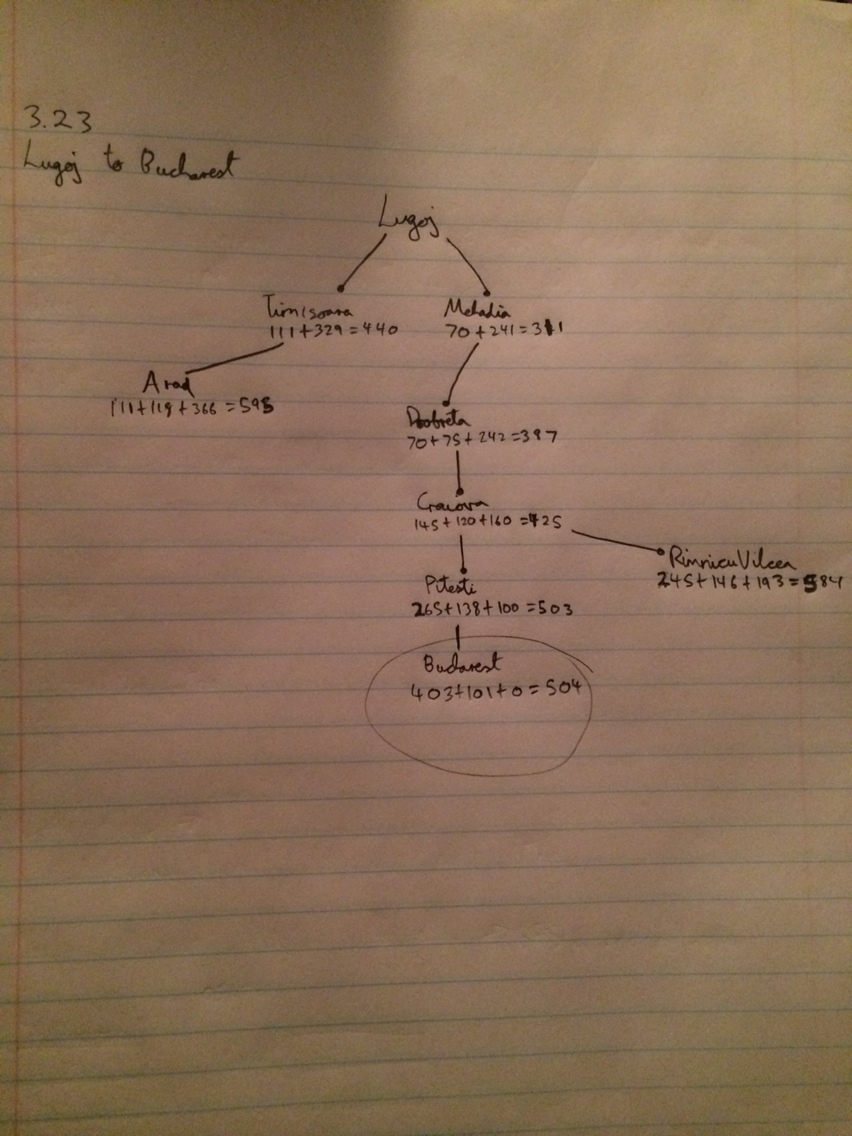 3.23
Lugoj to Bucharest
Lugoj
Timisoara
111+329=440
Mehadia
70+241=311
Arad
111+119+366=595
Drobreta
70+75+242=387
Craiova
145+120+160=425
RimnicuVilcea
245+146+193=584
Pitesti
265+138+100=503
Bucharest
403+101+0=504